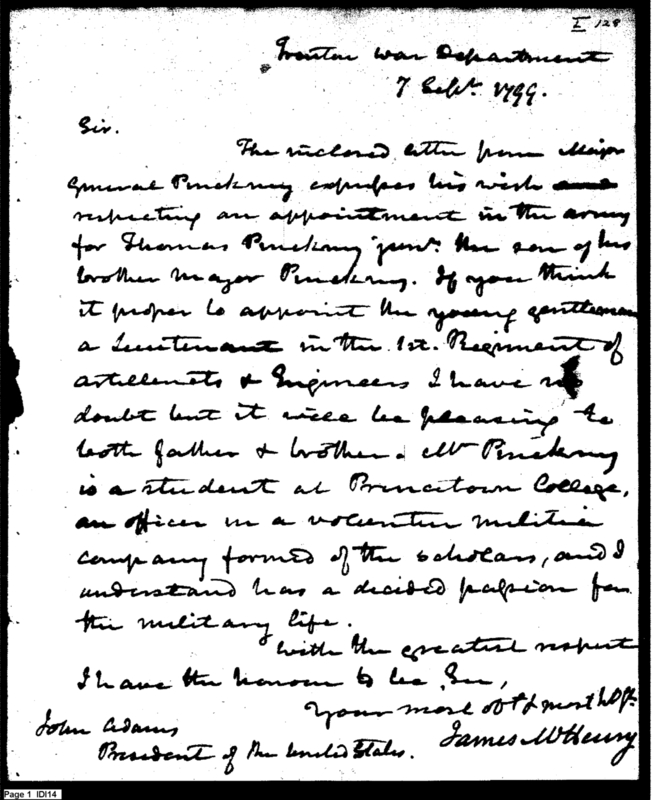 E 128
Trenton War Department
7 Sepr. 1799.
Sir.
The inclosed letter from Major
General Pinckney expresses his wish
respecting an appointment in the army
for Thomas Pinckney junr. the son of his
brother Major Pinckney. If you think
it proper to appoint the young gentleman
a Lieutenant in the 1st. Regiment of
Artillerists & Engineers I have no
doubt but it will be pleasing to
both father & brother. Mr Pinckney
is a student at Princetown College,
an officer in a volunteer militia
company formed of the scholars, and I
understand has a decided passion for
the military life.
With the greatest respect
I have the honour to be, Sir,
Your most obt & most hble St.
James McHenry
John Adams
President of the United States.
Page 1 IDI14